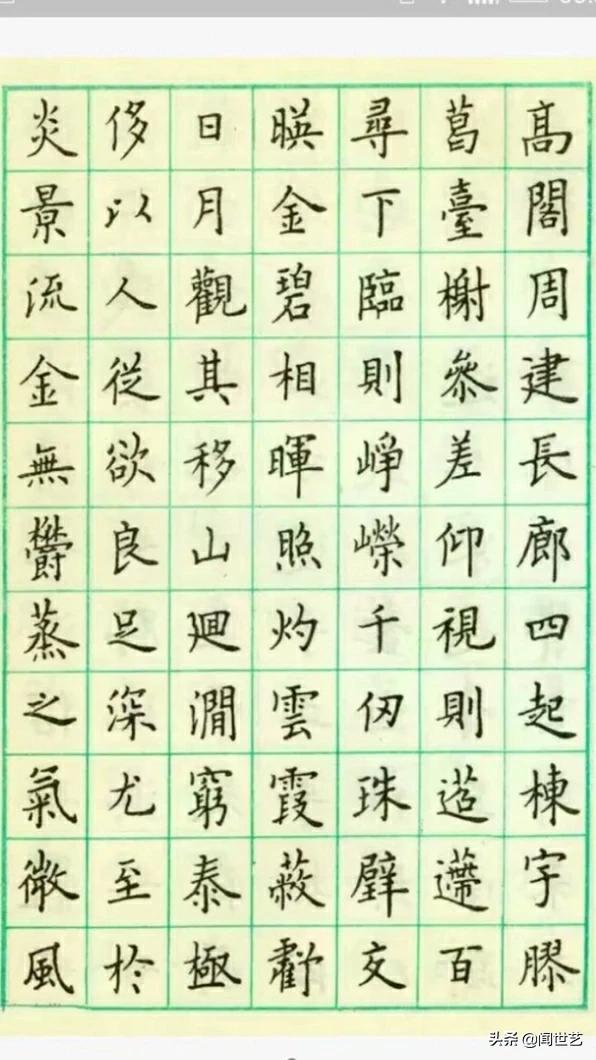 髙閣周建長廊四起棟宇膠
葛臺榭參差仰視則迢遰百
尋下臨則崢嶸千仞珠壁交
暎金碧相暉照灼雲霞蔽虧
日月觀其移山廻澗窮泰極
侈以人從欲良足深尤至於
炎景流金無鬱蒸之氣微風
头条 @闻世艺